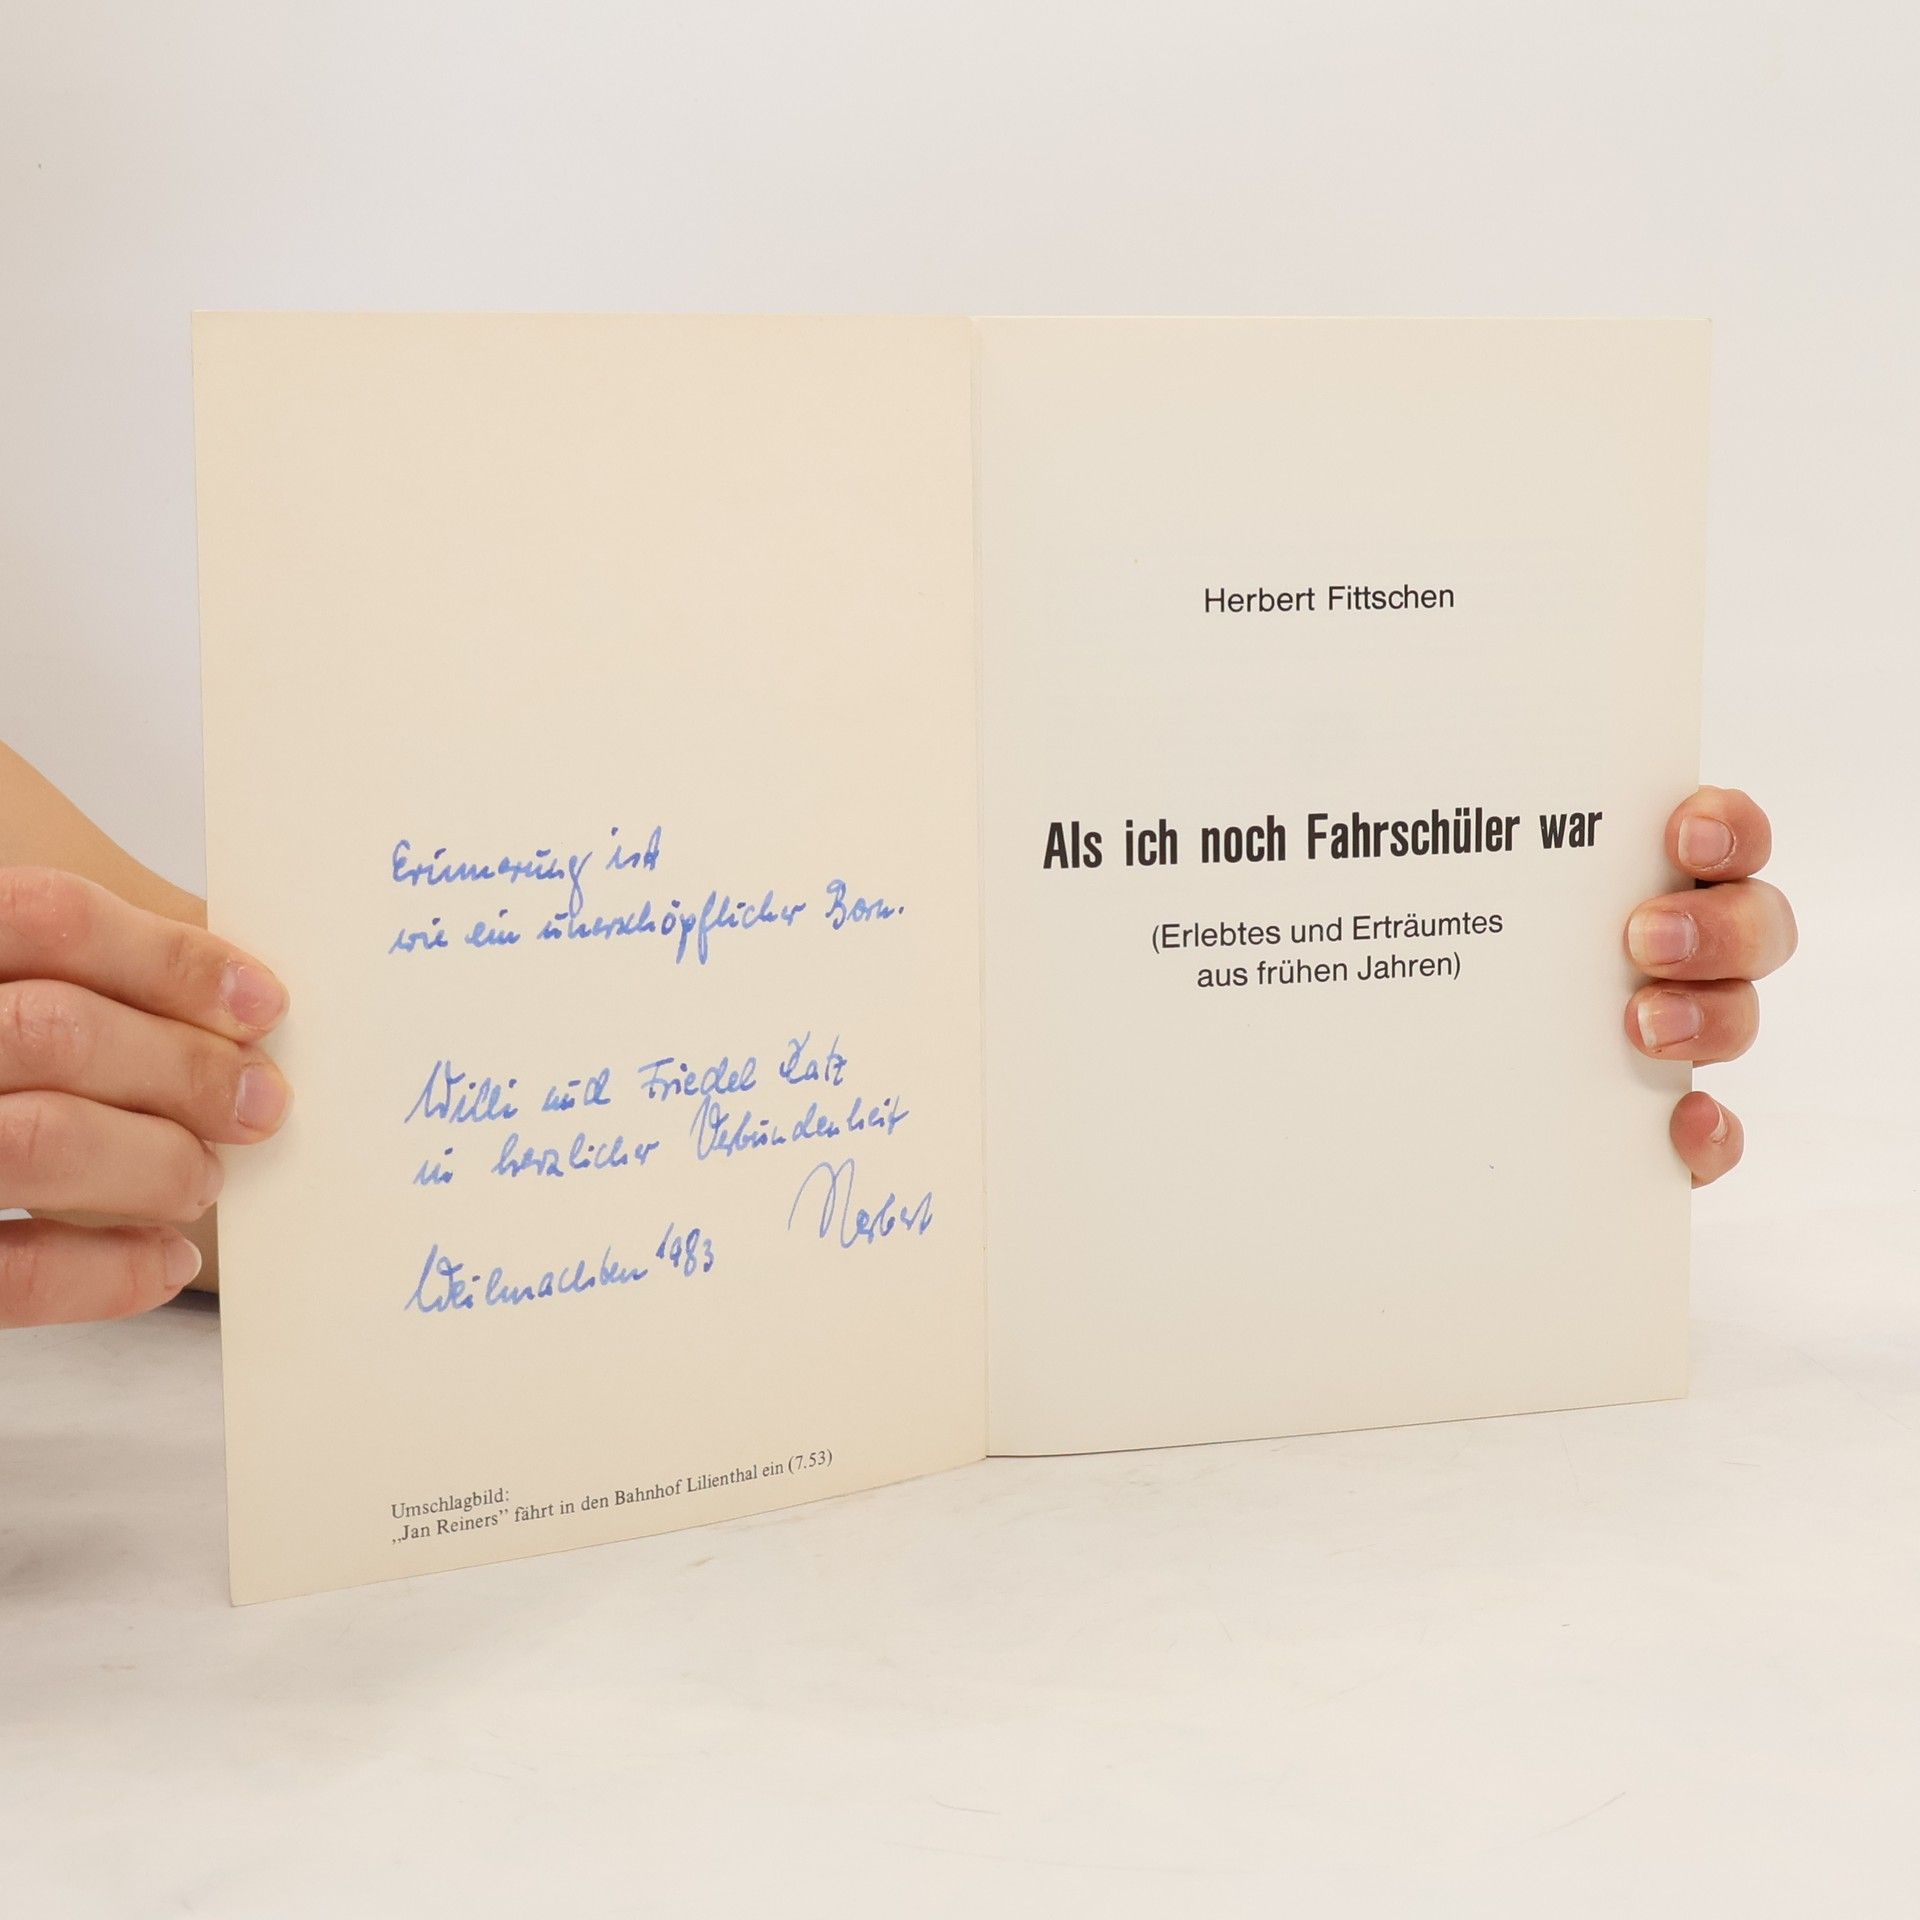 Erinnerung ist
wie ein unerschöpflicher Born.
Willi und Friedel Katz
in herzlicher Verbundenheit
Herbert
Weihnachten 1983
Umschlagbild:
„Jan Reiners” fährt in den Bahnhof Lilienthal ein (7.53)
Herbert Fittschen
Als ich noch Fahrschüler war
(Erlebtes und Erträumtes
aus frühen Jahren)